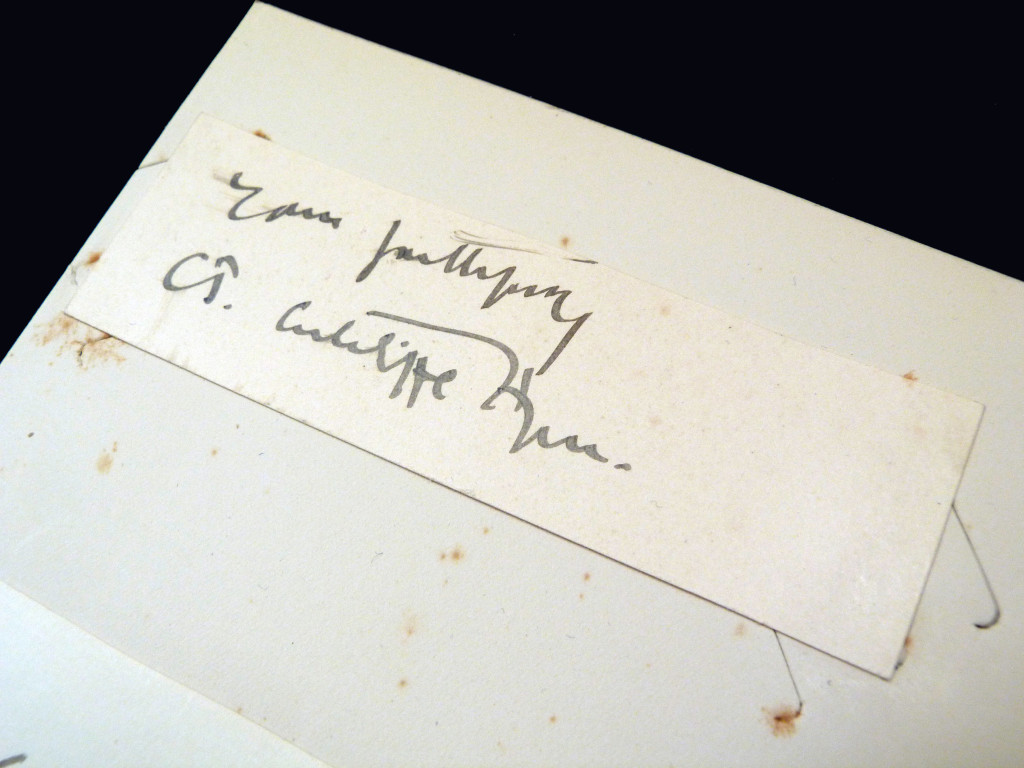 Yours faithfully
CJ. Cutcliffe Hyne.